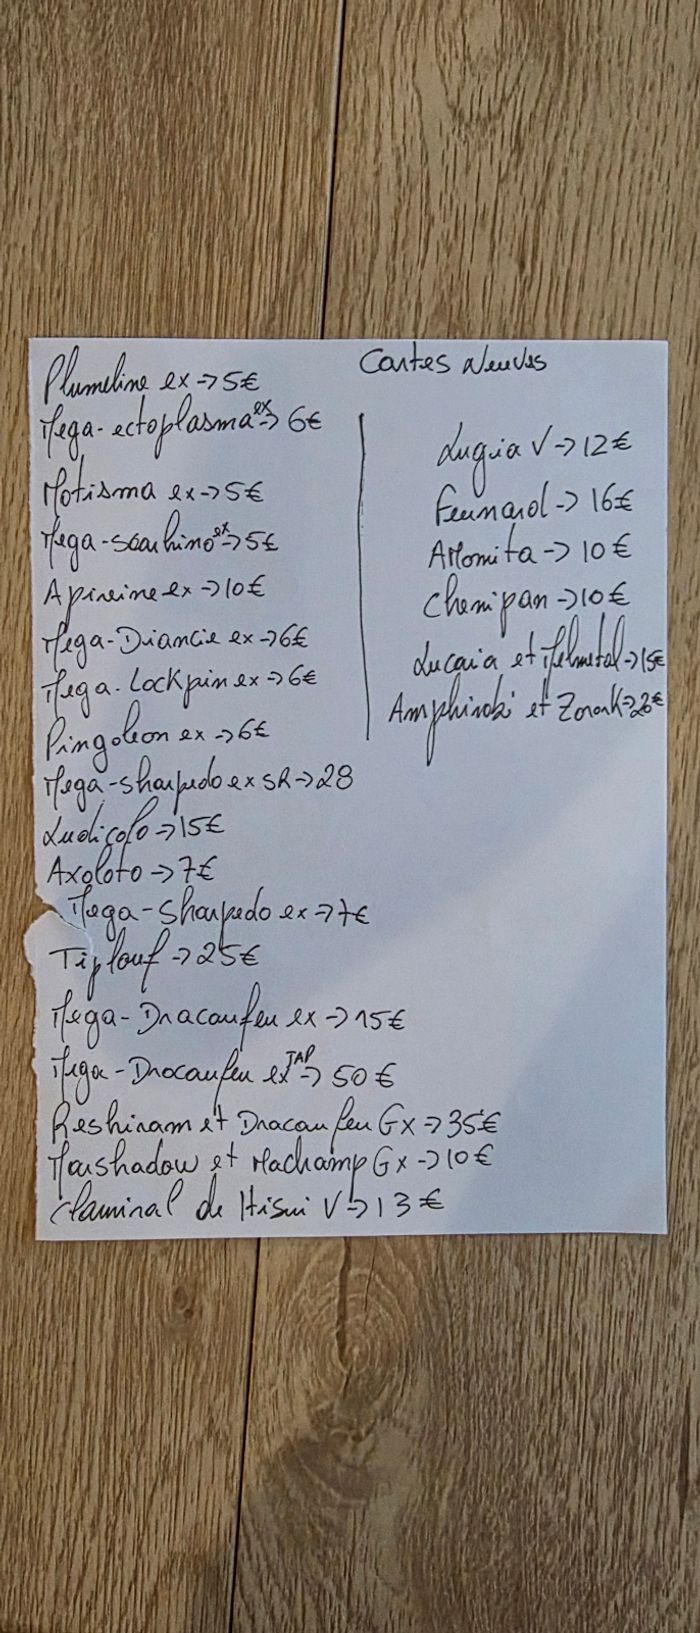 Cartes Neuves
Plumeline ex -> 5€
Mega-ectoplasma ex -> 6€
Motisma ex -> 5€
Mega-scarhino ex -> 5€
Apireine ex -> 10€
Mega-Diancie ex -> 6€
Mega-Lockpin ex -> 6€
Pingoleon ex -> 6€
Mega-sharpedo ex SR -> 28
Ludicolo -> 15€
Axoloto -> 7€
Mega-sharpedo ex -> 7€
Tiplouf -> 25€
Mega-Dracaufeu ex -> 15€
Mega-Dracaufeu ex JAP -> 50€
Reshiram et Dracaufeu Gx -> 35€
Marshadow et Machamp Gx -> 10€
Claminal de Hisui V -> 13€
Lugia V -> 12€
Feunard -> 16€
Amonita -> 10€
Chenipan -> 10€
Lucaria et Melmetal -> 15€
Amphinobi et Zoroark ->